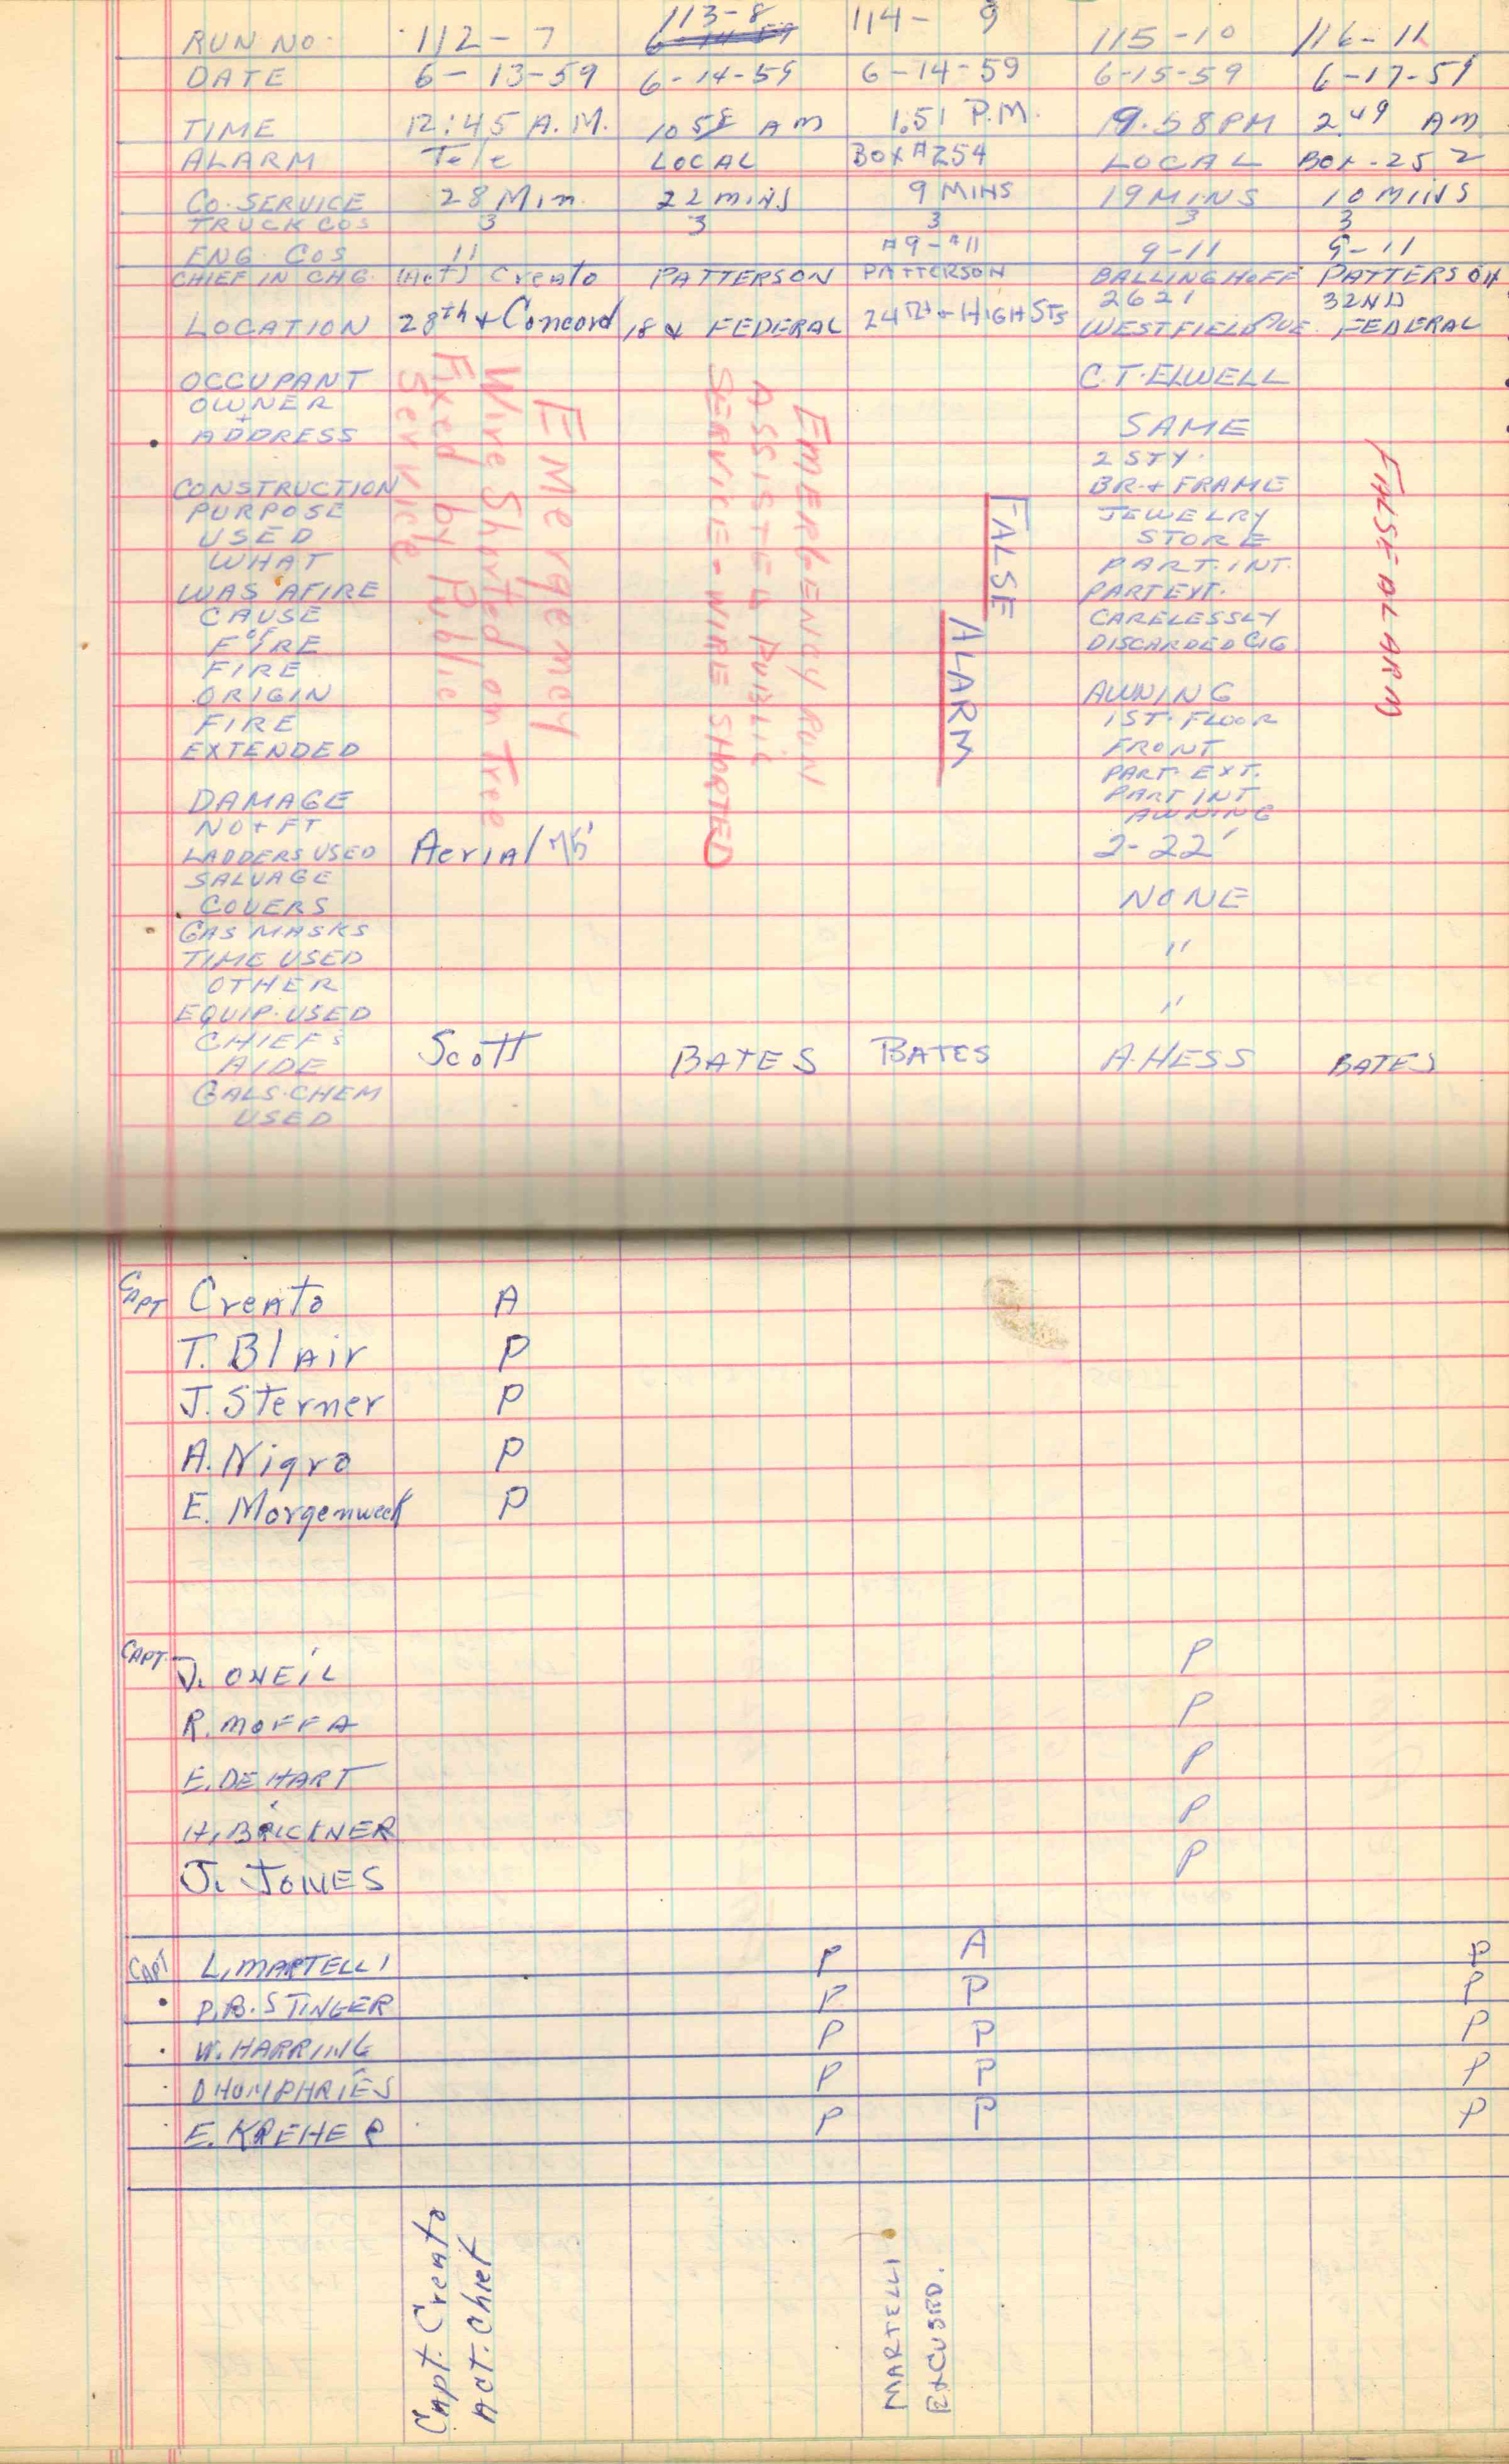 RUN NO. 112-7 113-8 114- 9 115-10 116-11
6-14-59
DATE 6-13-59 6-14-59 6-14-59 6-15-59 6-17-59
TIME 12:45 A.M. 1058 AM 1.51 P.M. 9.58PM 2.49 AM
ALARM Tele LOCAL BOX#254 LOCAL BOX-252
CO. SERVICE 28 Min. 22 mins 9 MINS 19 MINS 10 MINS
TRUCK COS 3 3 3 3 3
ENG. COS 11 #9-#11 9-11 9-11
CHIEF IN CHG. (Act) Crento PATTERSON PATTERSON BALLINGHOFF PATTERSON
LOCATION 28th + Concord 18 & FEDERAL 24TH + HIGH STS 2621 WESTFIELD AVE. 32ND FEDERAL
OCCUPANT C.T. ELWELL
OWNER
+
ADDRESS SAME
CONSTRUCTION 2 STY. BR. + FRAME
PURPOSE JEWELRY
USED STORE
WHAT PART. INT.
WAS AFIRE PART EXT.
CAUSE CARELESSLY
OF
FIRE DISCARDED CIG.
FIRE
ORIGIN AWNING
FIRE 1ST. FLOOR
EXTENDED FRONT
PART EXT.
DAMAGE PART INT
AWNING
NO + FT
LADDERS USED Aerial 75' 2-22'
SALVAGE
COVERS NONE
GAS MASKS
TIME USED "
OTHER
EQUIP. USED "
CHIEF'S
AIDE Scott BATES BATES A. HESS BATES
GALS. CHEM
USED
EMergency
Wire Shorted on Tree
Fixed by Public
Service
EMERGENCY RUN
ASSISTED PUBLIC
SERVICE - WIRE SHORTED
FALSE
ALARM
FALSE ALARM
CAPT Crento A
T. Blair P
J. Sterner P
A. Nigro P
E. Morgenweck P
CAPT. J. ONEIL P
R. MOFFA P
E. DE HART P
H. BRICKNER P
J. JONES P
CAPT L. MARTELLI P A P
P.B. STINGER P P P
W. HARRING P P P
D HUMPHRIES P P P
E. KREHER P P P
Capt. Crento
Act. Chief
MARTELLI
EXCUSED.